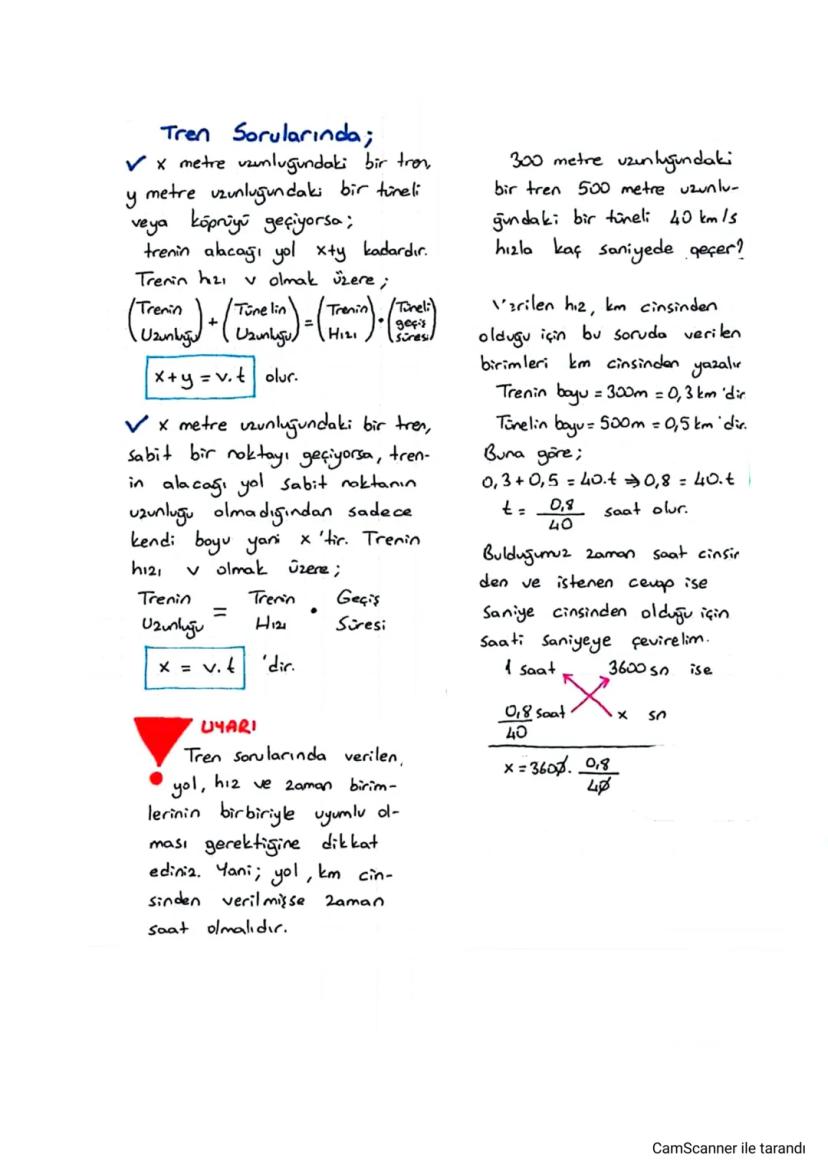 Tren Sorularında;
✓ x metre uzunluğundaki bir tren,
y metre uzunluğundaki bir tüneli
veya köprüyü geçiyorsa;
trenin alacağı yol x+y kadardır.
Trenin hızı v olmak üzere;
(Trenin Uzunluğu) + (Tünelin Uzunluğu) = (Trenin Hızı) . (Tüneli geçiş süresi)
x+y = v.t olur.
✓ x metre uzunluğundaki bir tren,
sabit bir noktayı geçiyorsa, tren-
in alacağı yol sabit noktanın
uzunluğu olmadığından sadece
kendi boyu yani x 'tir. Trenin
hızı v olmak üzere;
Trenin Uzunluğu = Trenin Hızı . Geçiş Süresi
x = v.t 'dir.
UYARI
Tren sorularında verilen,
yol, hız ve zaman birim-
lerinin birbiriyle uyumlu ol-
ması gerektiğine dikkat
ediniz. Yani; yol, km cin-
sinden verilmişse zaman
saat olmalıdır.
300 metre uzunluğundaki
bir tren 500 metre uzunlu-
ğundaki bir tüneli 40 km/s
hızla kaç saniyede geçer?
Verilen hız, km cinsinden
olduğu için bu soruda verilen
birimleri km cinsinden yazalı
Trenin boyu = 300m = 0,3 km 'dir
Tünelin boyu = 500m = 0,5 km 'dir.
Buna göre;
0,3+0,5 = 40.t ⇒ 0,8 = 40.t
t = 0,8/40 saat olur.
Bulduğumuz zaman saat cinsin
den ve istenen cevap ise
saniye cinsinden olduğu için
saati saniyeye çevirelim.
1 saat 3600 sn ise
0,8/40 saat x sn
x = 3600 . 0,8/40
CamScanner ile tarandı